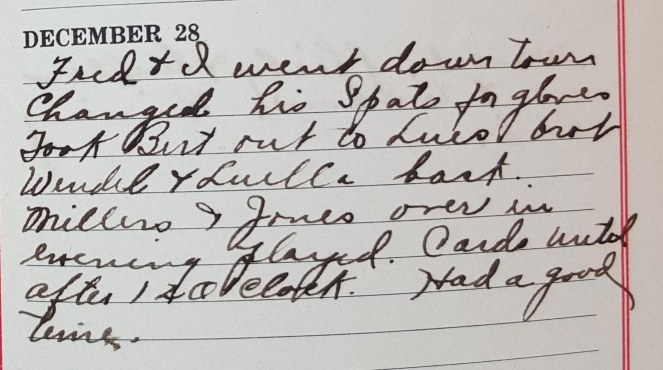 DECEMBER 28
Fred & I went down town
Changed his Spats for gloves
Took Bert out to Lues brot
Wendel & Luella back.
Millers & Jones over in
evening played. Cards until
after 12 O'Clock. Had a good
time.